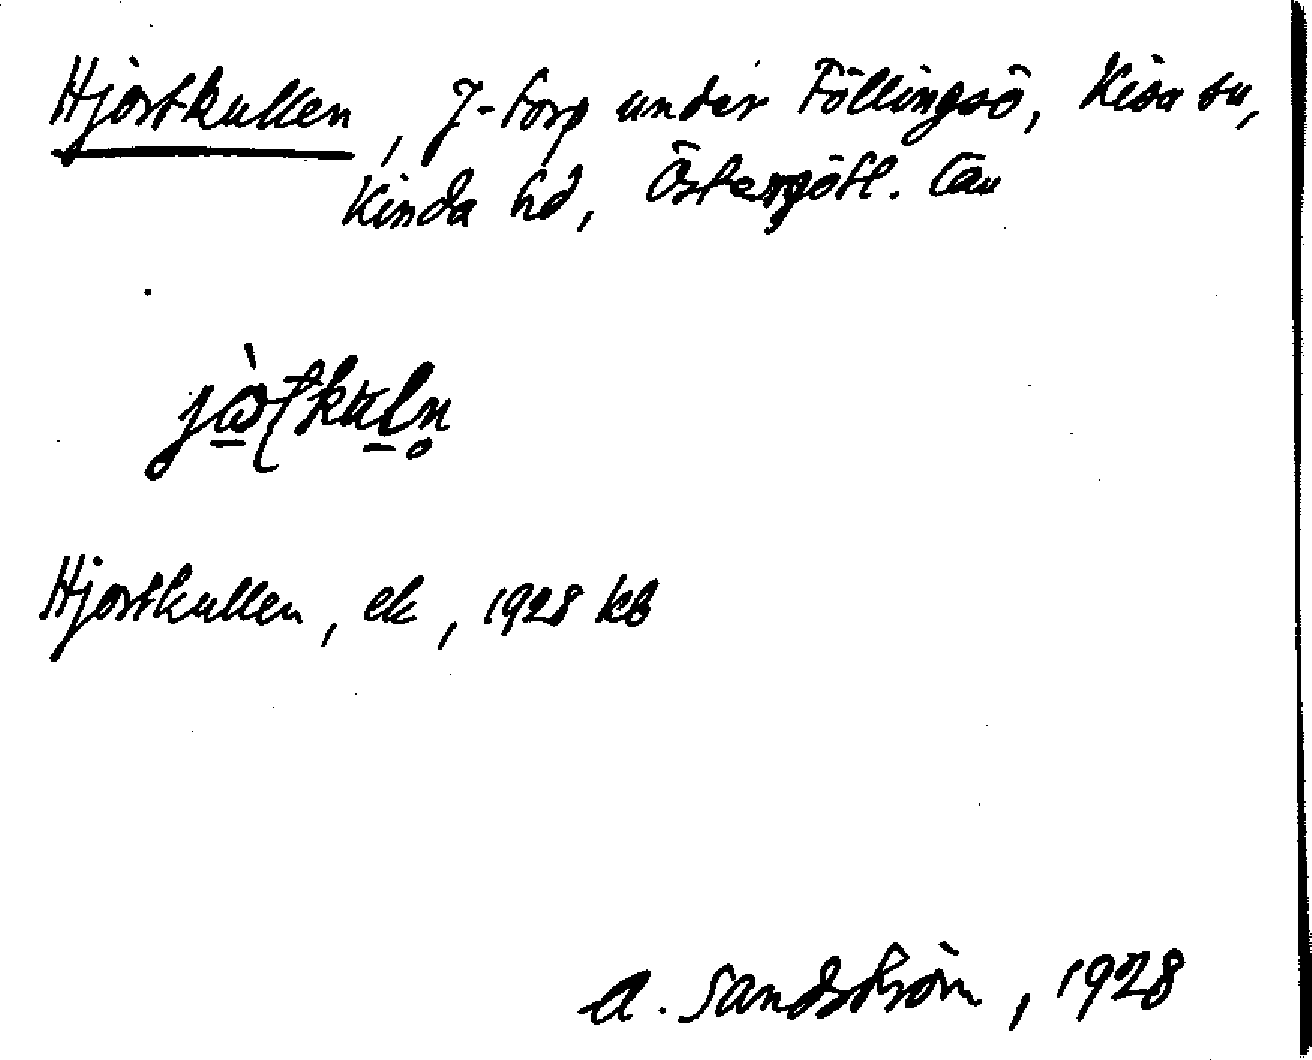 Hjortkullen, J-torp under Föllingsö, Kisa sn,
Kinda hd, Östergötl. län
Hjortkullen, ek, 1928 kb
A. Sandström, 1928